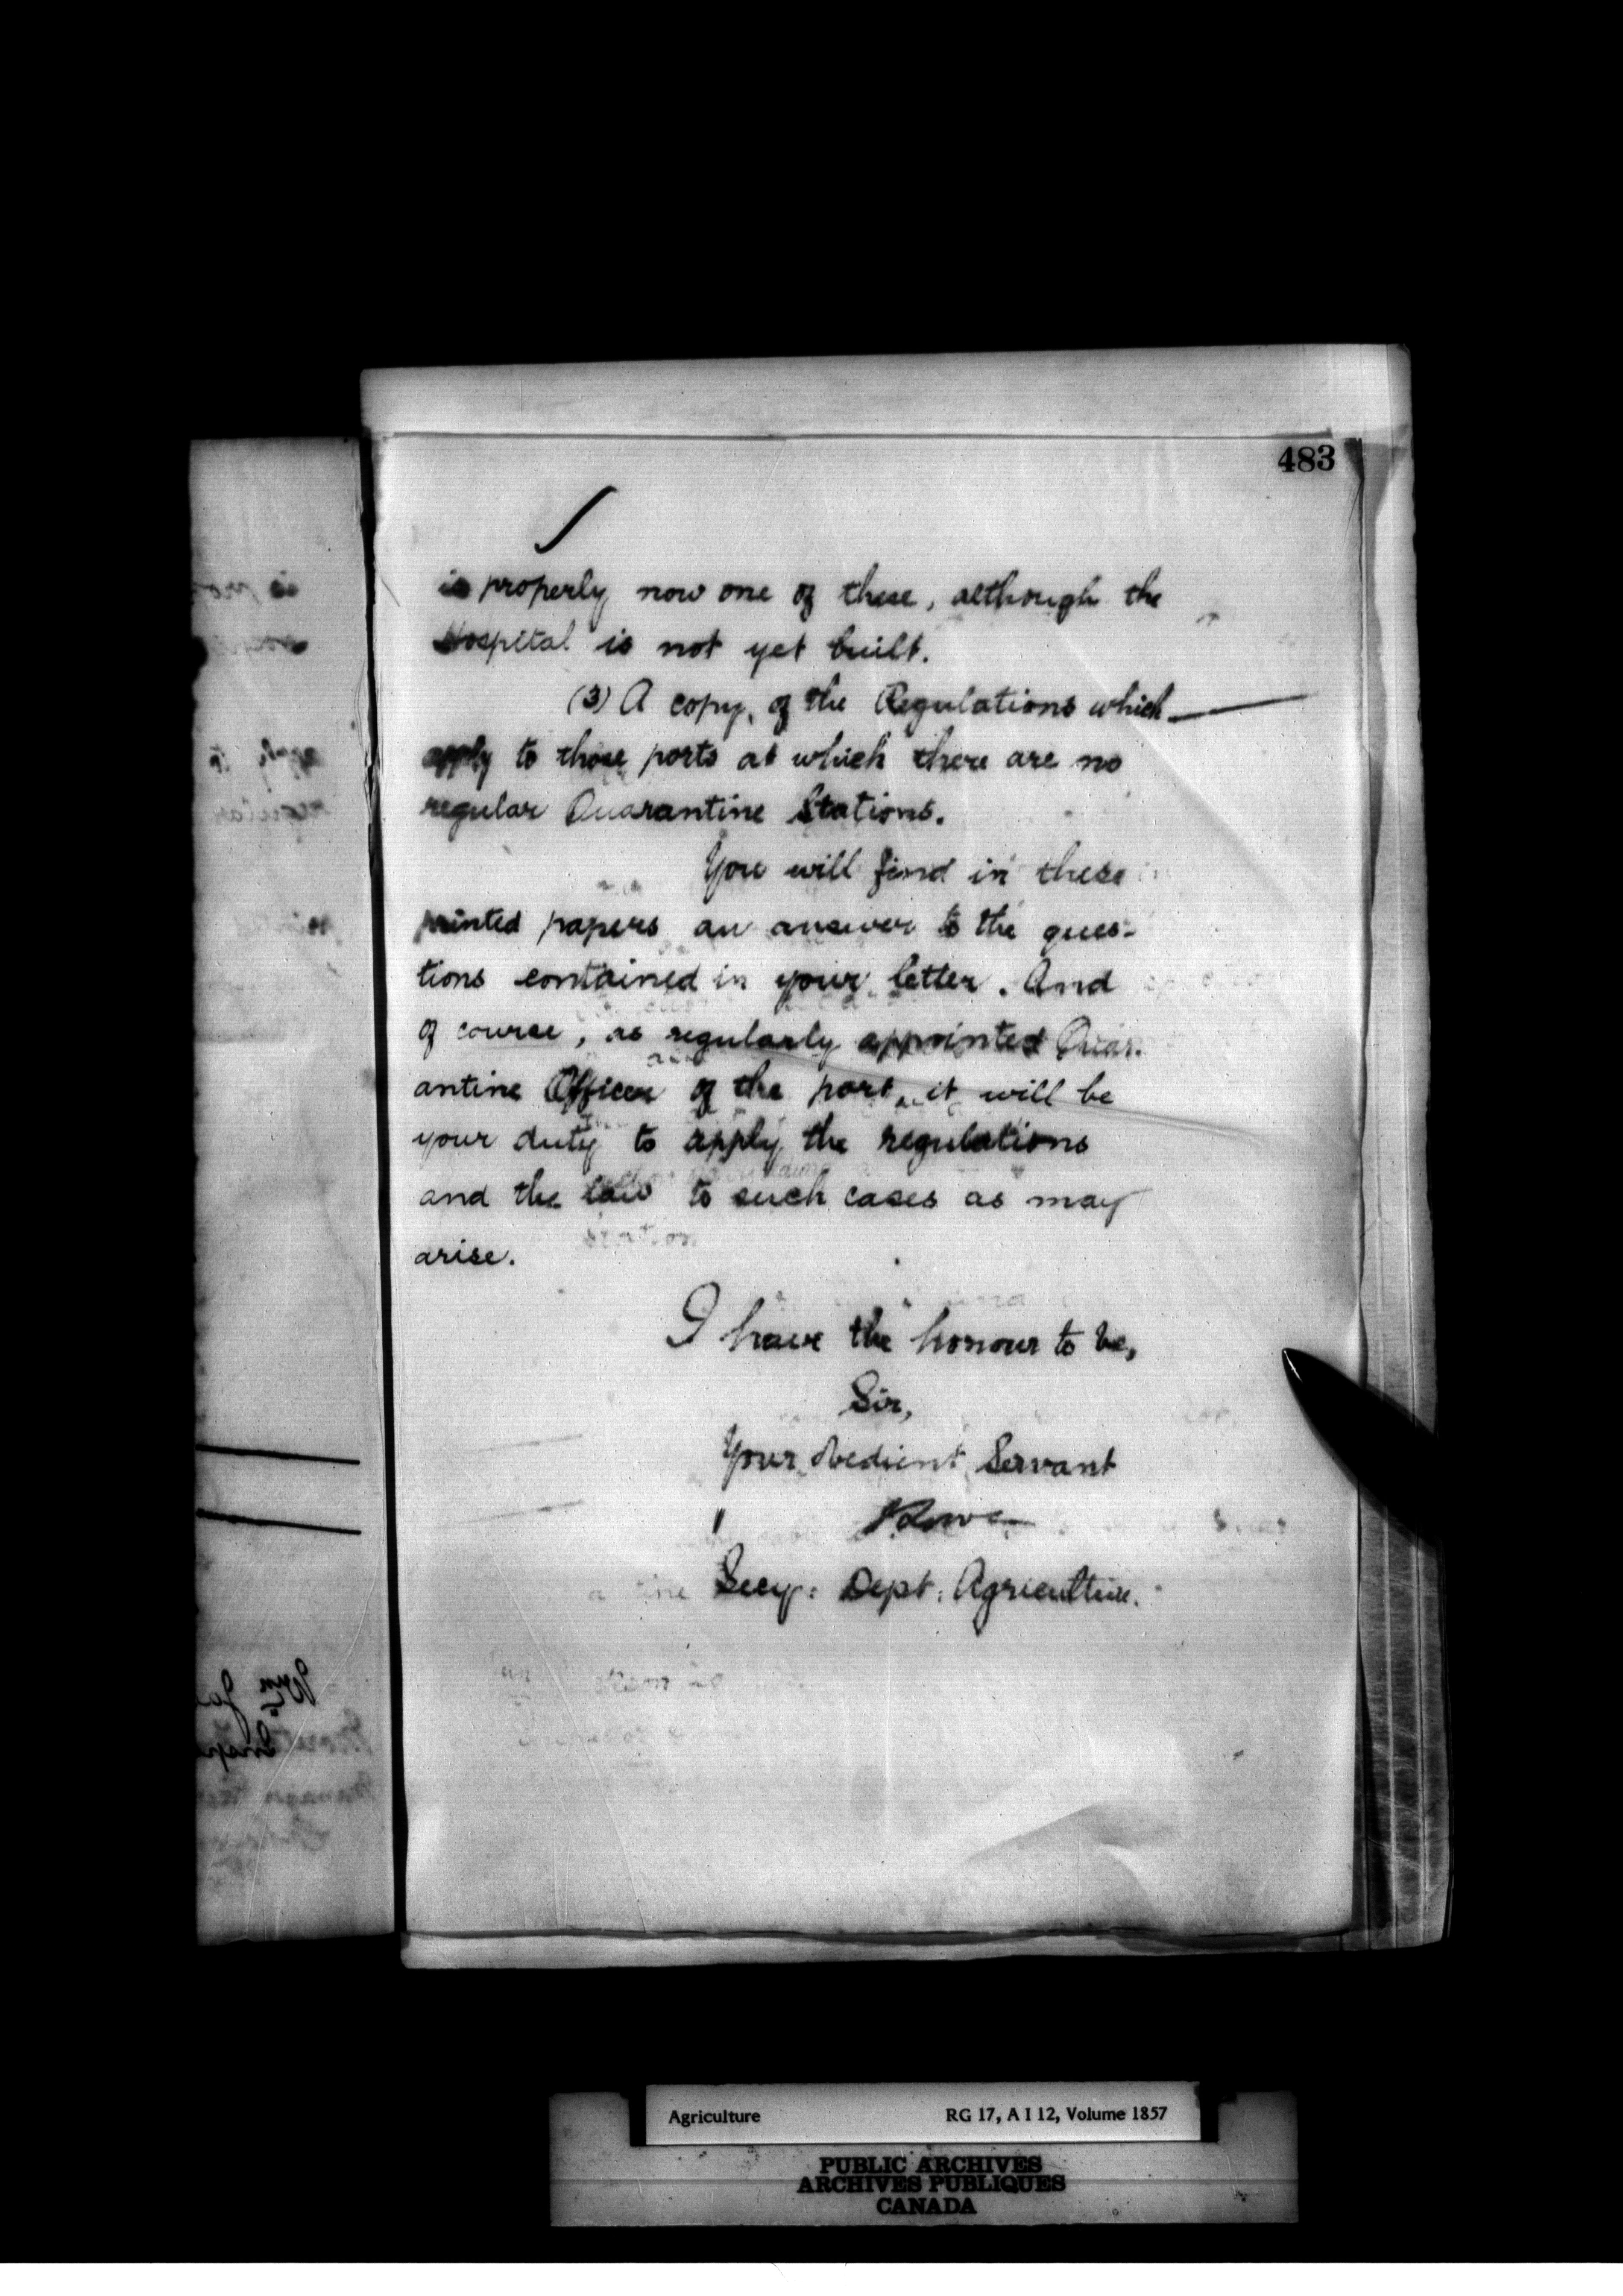 483
is properly now one of these, although the
Hospital is not yet built.
(3) A copy, of the Regulations which
apply to those ports at which there are no
regular Quarantine Stations.
You will find in these
printed papers an answer to the ques-
tions contained in your letter. And
of course, as regularly appointed Quar-
antine Officer of the port, it will be
your duty to apply the regulations
and the law to such cases as may
arise.
I have the honour to be,
Sir,
Your obedient Servant
" J Lowe
Secy: Dept: Agriculture.
Agriculture RG 17, A I 12, Volume 1857
PUBLIC ARCHIVES
ARCHIVES PUBLIQUES
CANADA